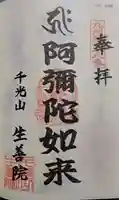 奉拝
阿彌陀如来
千光山
生善院